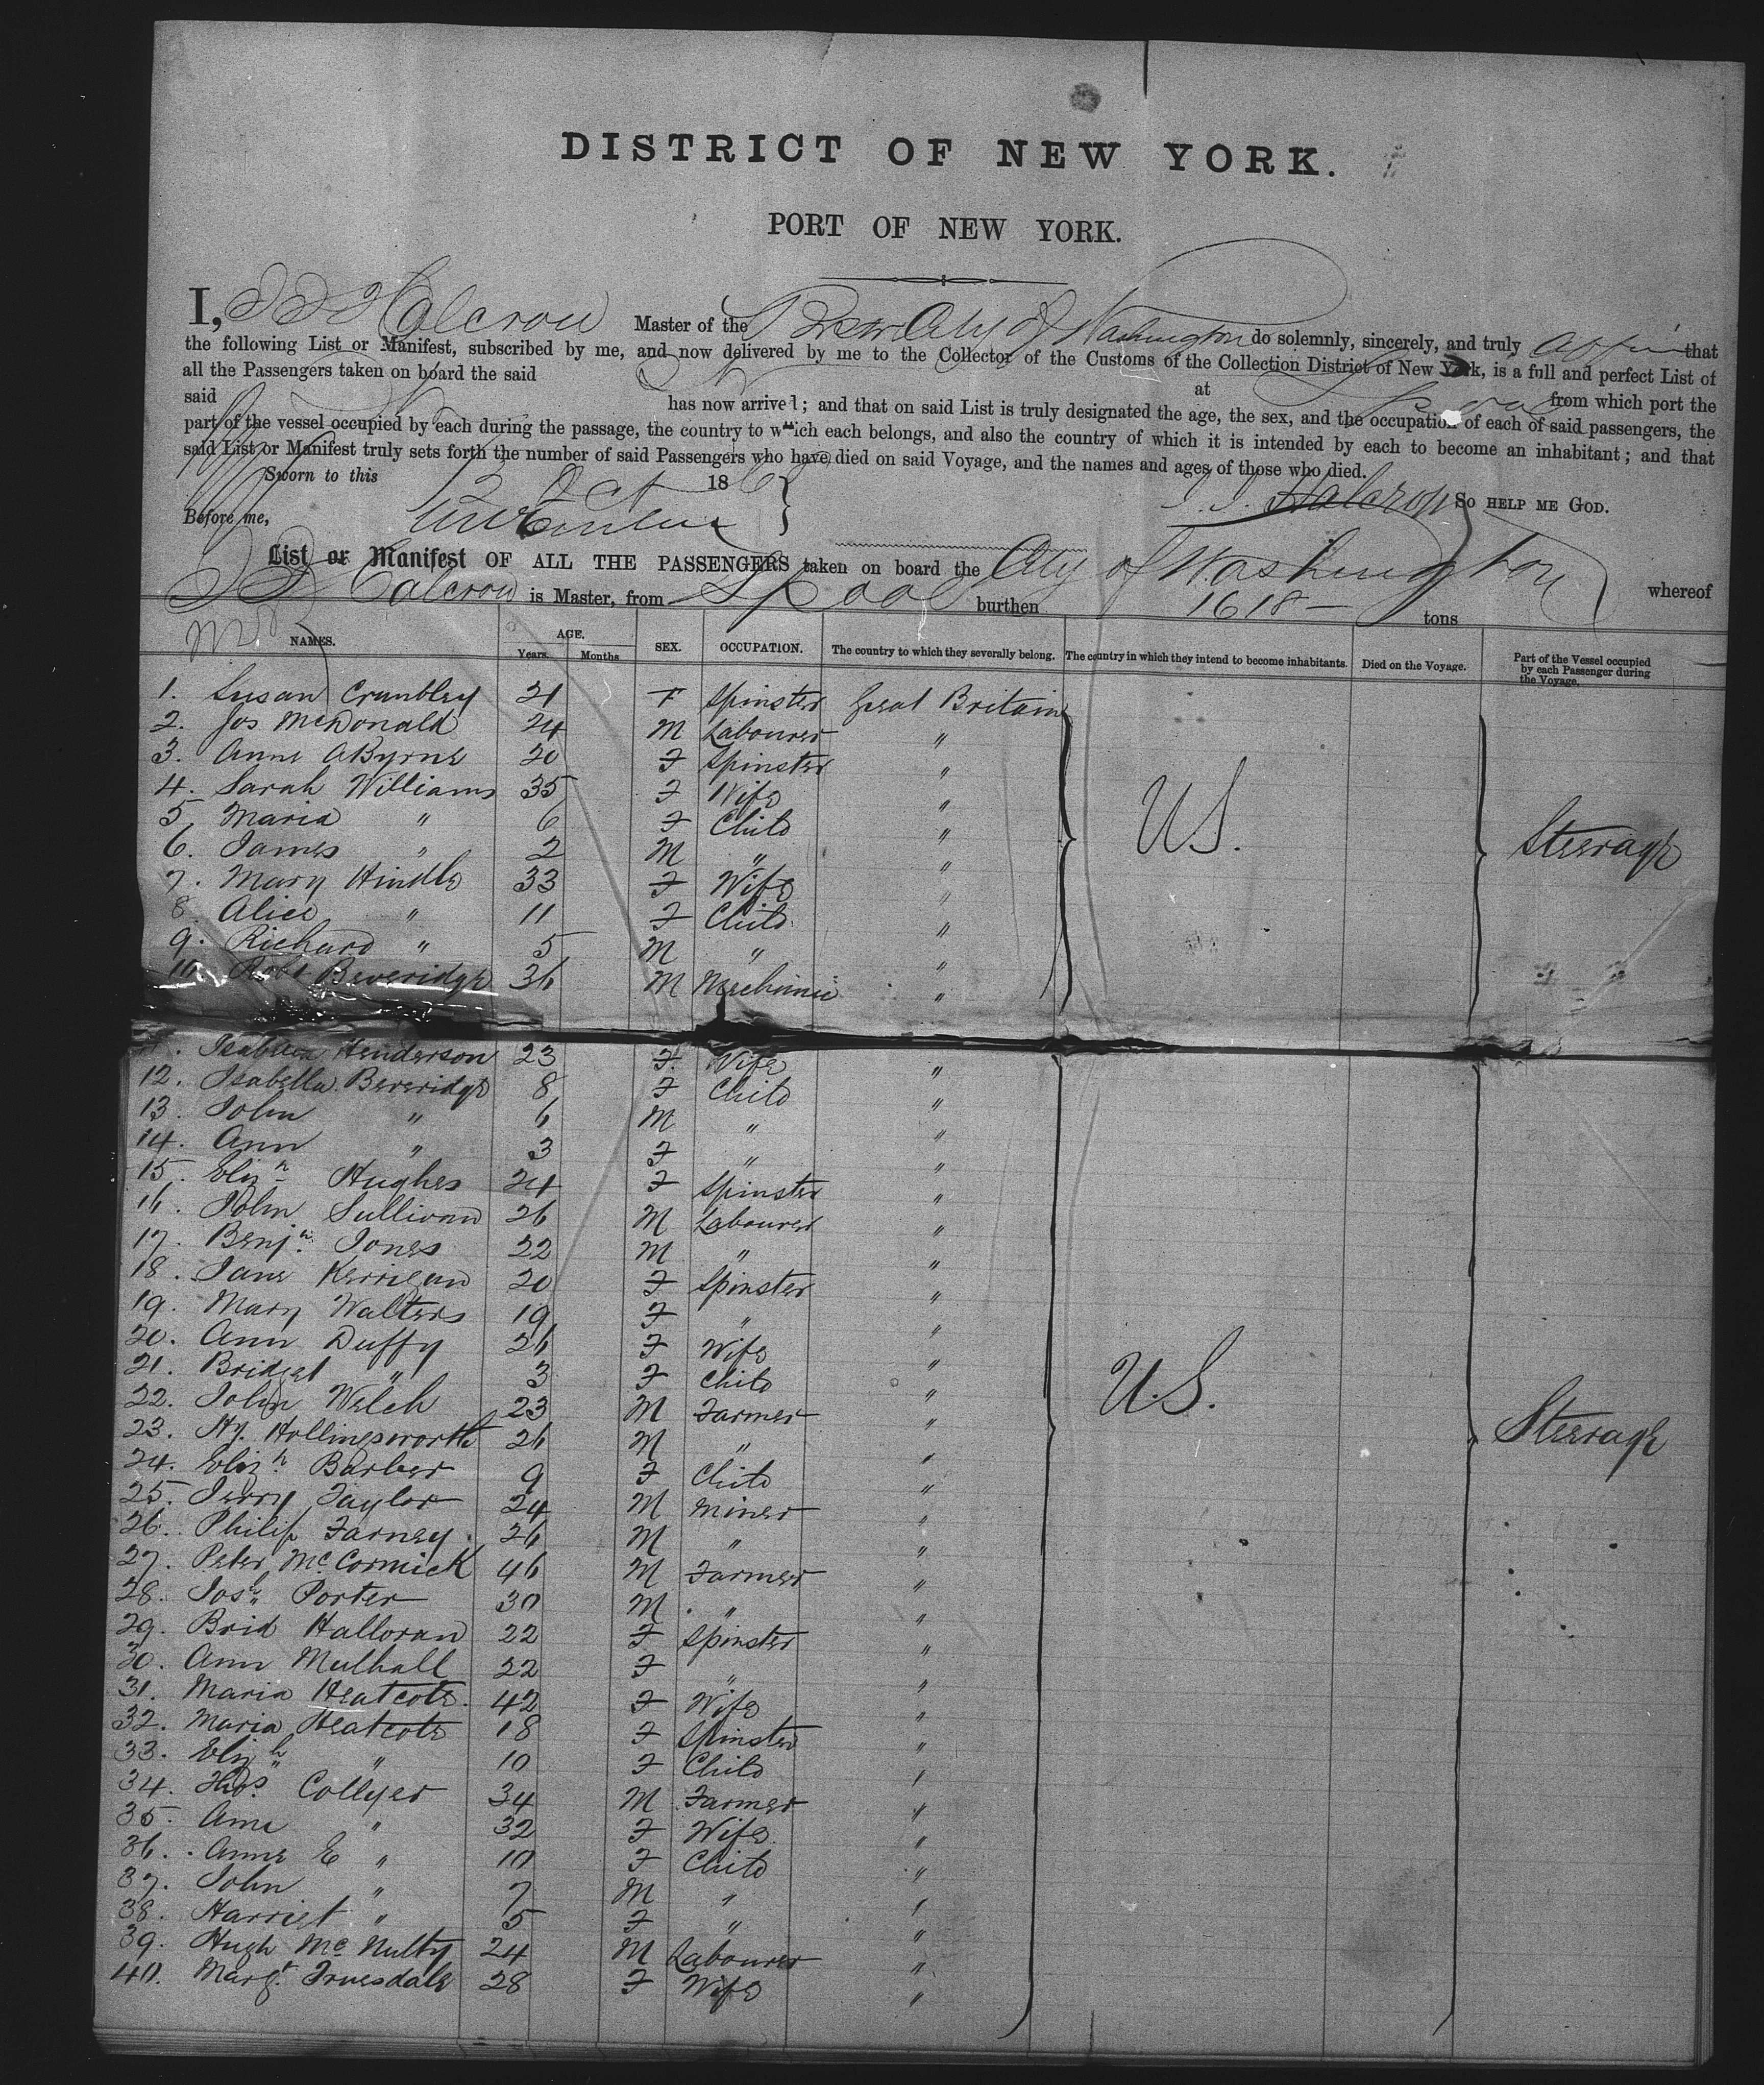 DISTRICT OF NEW YORK.
PORT OF NEW YORK.
I, Halcrow Master of the City of Washington do solemnly, sincerely, and truly that
the following List or Manifest, subscribed by me, and now delivered by me to the Collector of the Customs of the Collection District of New York, is a full and perfect List of
all the Passengers taken on board the said at from which port the
said has now arrived; and that on said List is truly designated the age, the sex, and the occupation of each of said passengers, the
part of the vessel occupied by each during the passage, the country to which each belongs, and also the country of which it is intended by each to become an inhabitant; and that
said List or Manifest truly sets forth the number of said Passengers who have died on said Voyage, and the names and ages of those who died.
Sworn to this Oct 186 Halcrow SO HELP ME GOD.
Before me,
List or Manifest OF ALL THE PASSENGERS taken on board the City of Washington whereof
Halcrow is Master, from Lpool burthen 1618 tons
NAMES. AGE. Years. Months SEX. OCCUPATION. The country to which they severally belong. The country in which they intend to become inhabitants. Died on the Voyage. Part of the Vessel occupied by each Passenger during the Voyage.
1. Susan Crumbley 21 F Spinster Great Britain
2. Jos McDonald 24 M Labourer "
3. Anne OByrne 20 F Spinster "
4. Sarah Williams 35 F Wife "
5. Maria " 6 F Child " US. Steerage
6. James " 2 M " "
7. Mary Hindle 33 F Wife "
8. Alice " 11 F Child "
9. Richard " 5 M " "
10. Robt Beveridge 36 M Mechanic "
11. Isabella Henderson 23 F. Wife "
12. Isabella Beveridge 8 F Child "
13. John " 6 M " "
14. Ann " 3 F " "
15. Elizh Hughes 24 F Spinster "
16. John Sullivan 26 M Labourer "
17. Benjn. Jones 22 M " "
18. Jane Kerrigan 20 F Spinster "
19. Mary Walters 19 F " "
20. Ann Duffy 26 F Wife "
21. Bridget " 3 F Child "
22. John Welch 23 M Farmer " U.S.
23. Hy. Hollingsworth 26 M " " Steerage
24. Elizh. Barber 9 F Child "
25. Jerry Taylor 24 M Miner "
26. Philip Farney 26 M " "
27. Peter McCormick 46 M Farmer "
28. Josh. Porter 30 M " "
29. Brid Halloran 22 F Spinster "
30. Ann Mulhall 22 F " "
31. Maria Heatcote 42 F Wife "
32. Maria Heatcote 18 F Spinster "
33. Elizh " 10 F Child "
34. Thos. Collyer 34 M Farmer "
35. Ann " 32 F Wife "
36. Anne E " 10 F Child "
37. John " 7 M " "
38. Harriet " 5 F " "
39. Hugh McNulty 24 M Labourer "
40. Margt. Truesdale 28 F Wife "